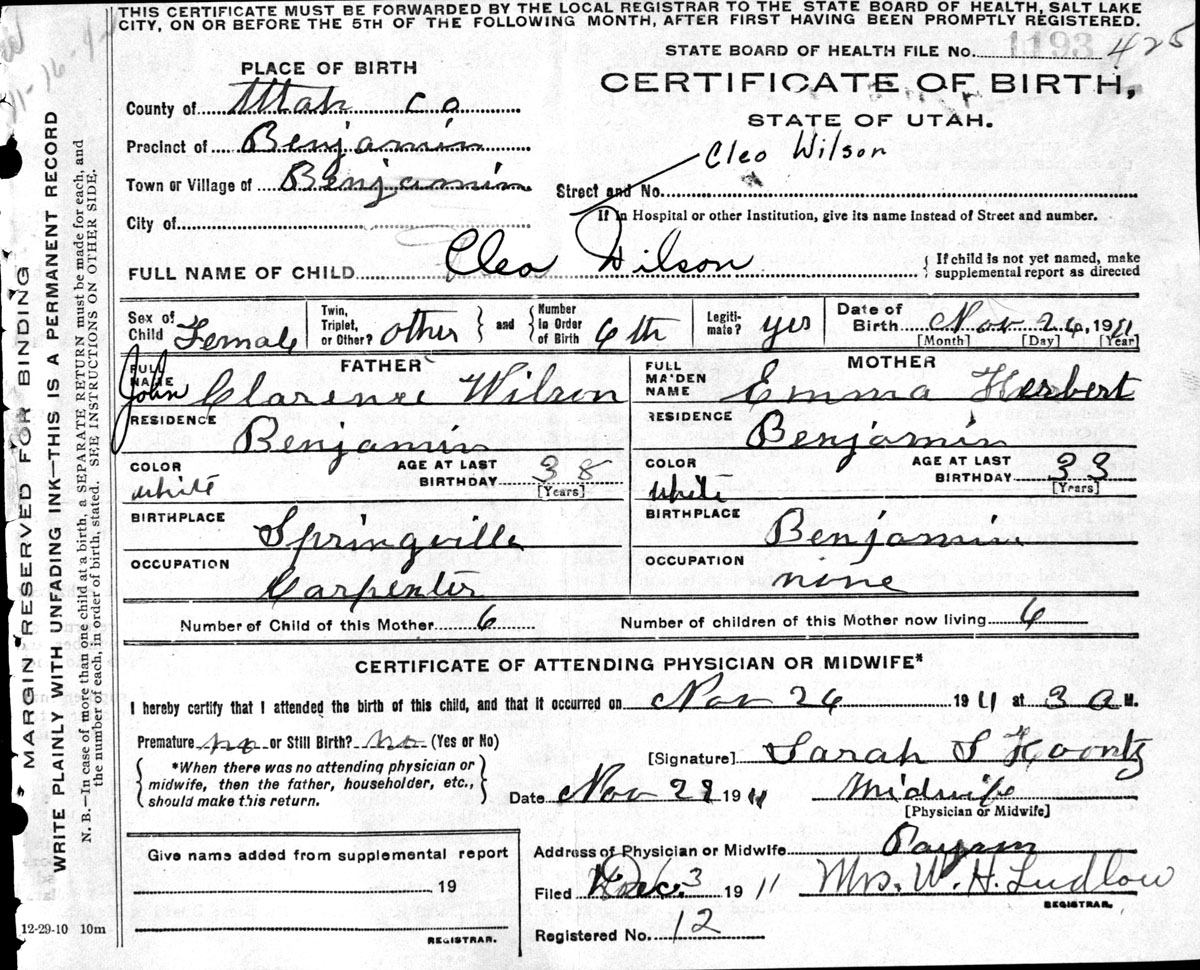 THIS CERTIFICATE MUST BE FORWARDED BY THE LOCAL REGISTRAR TO THE STATE BOARD OF HEALTH, SALT LAKE
CITY, ON OR BEFORE THE 5TH OF THE FOLLOWING MONTH, AFTER FIRST HAVING BEEN PROMPTLY REGISTERED.
STATE BOARD OF HEALTH FILE No. 1193 425
PLACE OF BIRTH
CERTIFICATE OF BIRTH,
STATE OF UTAH.
County of Utah co
Precinct of Benjamin
Cleo Wilson
Town or Village of Benjamin
Street and No.
City of
If in Hospital or other Institution, give its name instead of Street and number.
FULL NAME OF CHILD Cleo Wilson
{ If child is not yet named, make
supplemental report as directed
Sex of Child Female
Twin, Triplet, or Other? other
and
Number in Order of Birth 6th
Legiti-mate? yes
Date of Birth Nov 26, 1911
[Month] [Day] [Year]
FATHER
FULL NAME John Clarence Wilson
RESIDENCE Benjamin
COLOR white
AGE AT LAST BIRTHDAY 38
[Years]
BIRTHPLACE Springville
OCCUPATION Carpenter
MOTHER
FULL MAIDEN NAME Emma Herbert
RESIDENCE Benjamin
COLOR white
AGE AT LAST BIRTHDAY 33
[Years]
BIRTHPLACE Benjamin
OCCUPATION none
Number of Child of this Mother 6
Number of children of this Mother now living 6
CERTIFICATE OF ATTENDING PHYSICIAN OR MIDWIFE*
I hereby certify that I attended the birth of this child, and that it occurred on Nov 26 1911 at 3 a M.
Premature no or Still Birth? no (Yes or No)
[Signature] Sarah S Koontz
*When there was no attending physician or
midwife, then the father, householder, etc.,
should make this return.
Date Nov 29 1911
Midwife
[Physician or Midwife]
Give name added from supplemental report
19
REGISTRAR.
Address of Physician or Midwife
Filed Dec. 3 1911 Mrs. W. H. Ludlow
REGISTRAR.
Registered No. 12
12-29-10 10m
MARGIN RESERVED FOR BINDING
WRITE PLAINLY WITH UNFADING INK—THIS IS A PERMANENT RECORD
N. B.—In case of more than one child at a birth, a SEPARATE RETURN must be made for each, and
the number of each, in order of birth, stated. SEE INSTRUCTIONS ON OTHER SIDE.